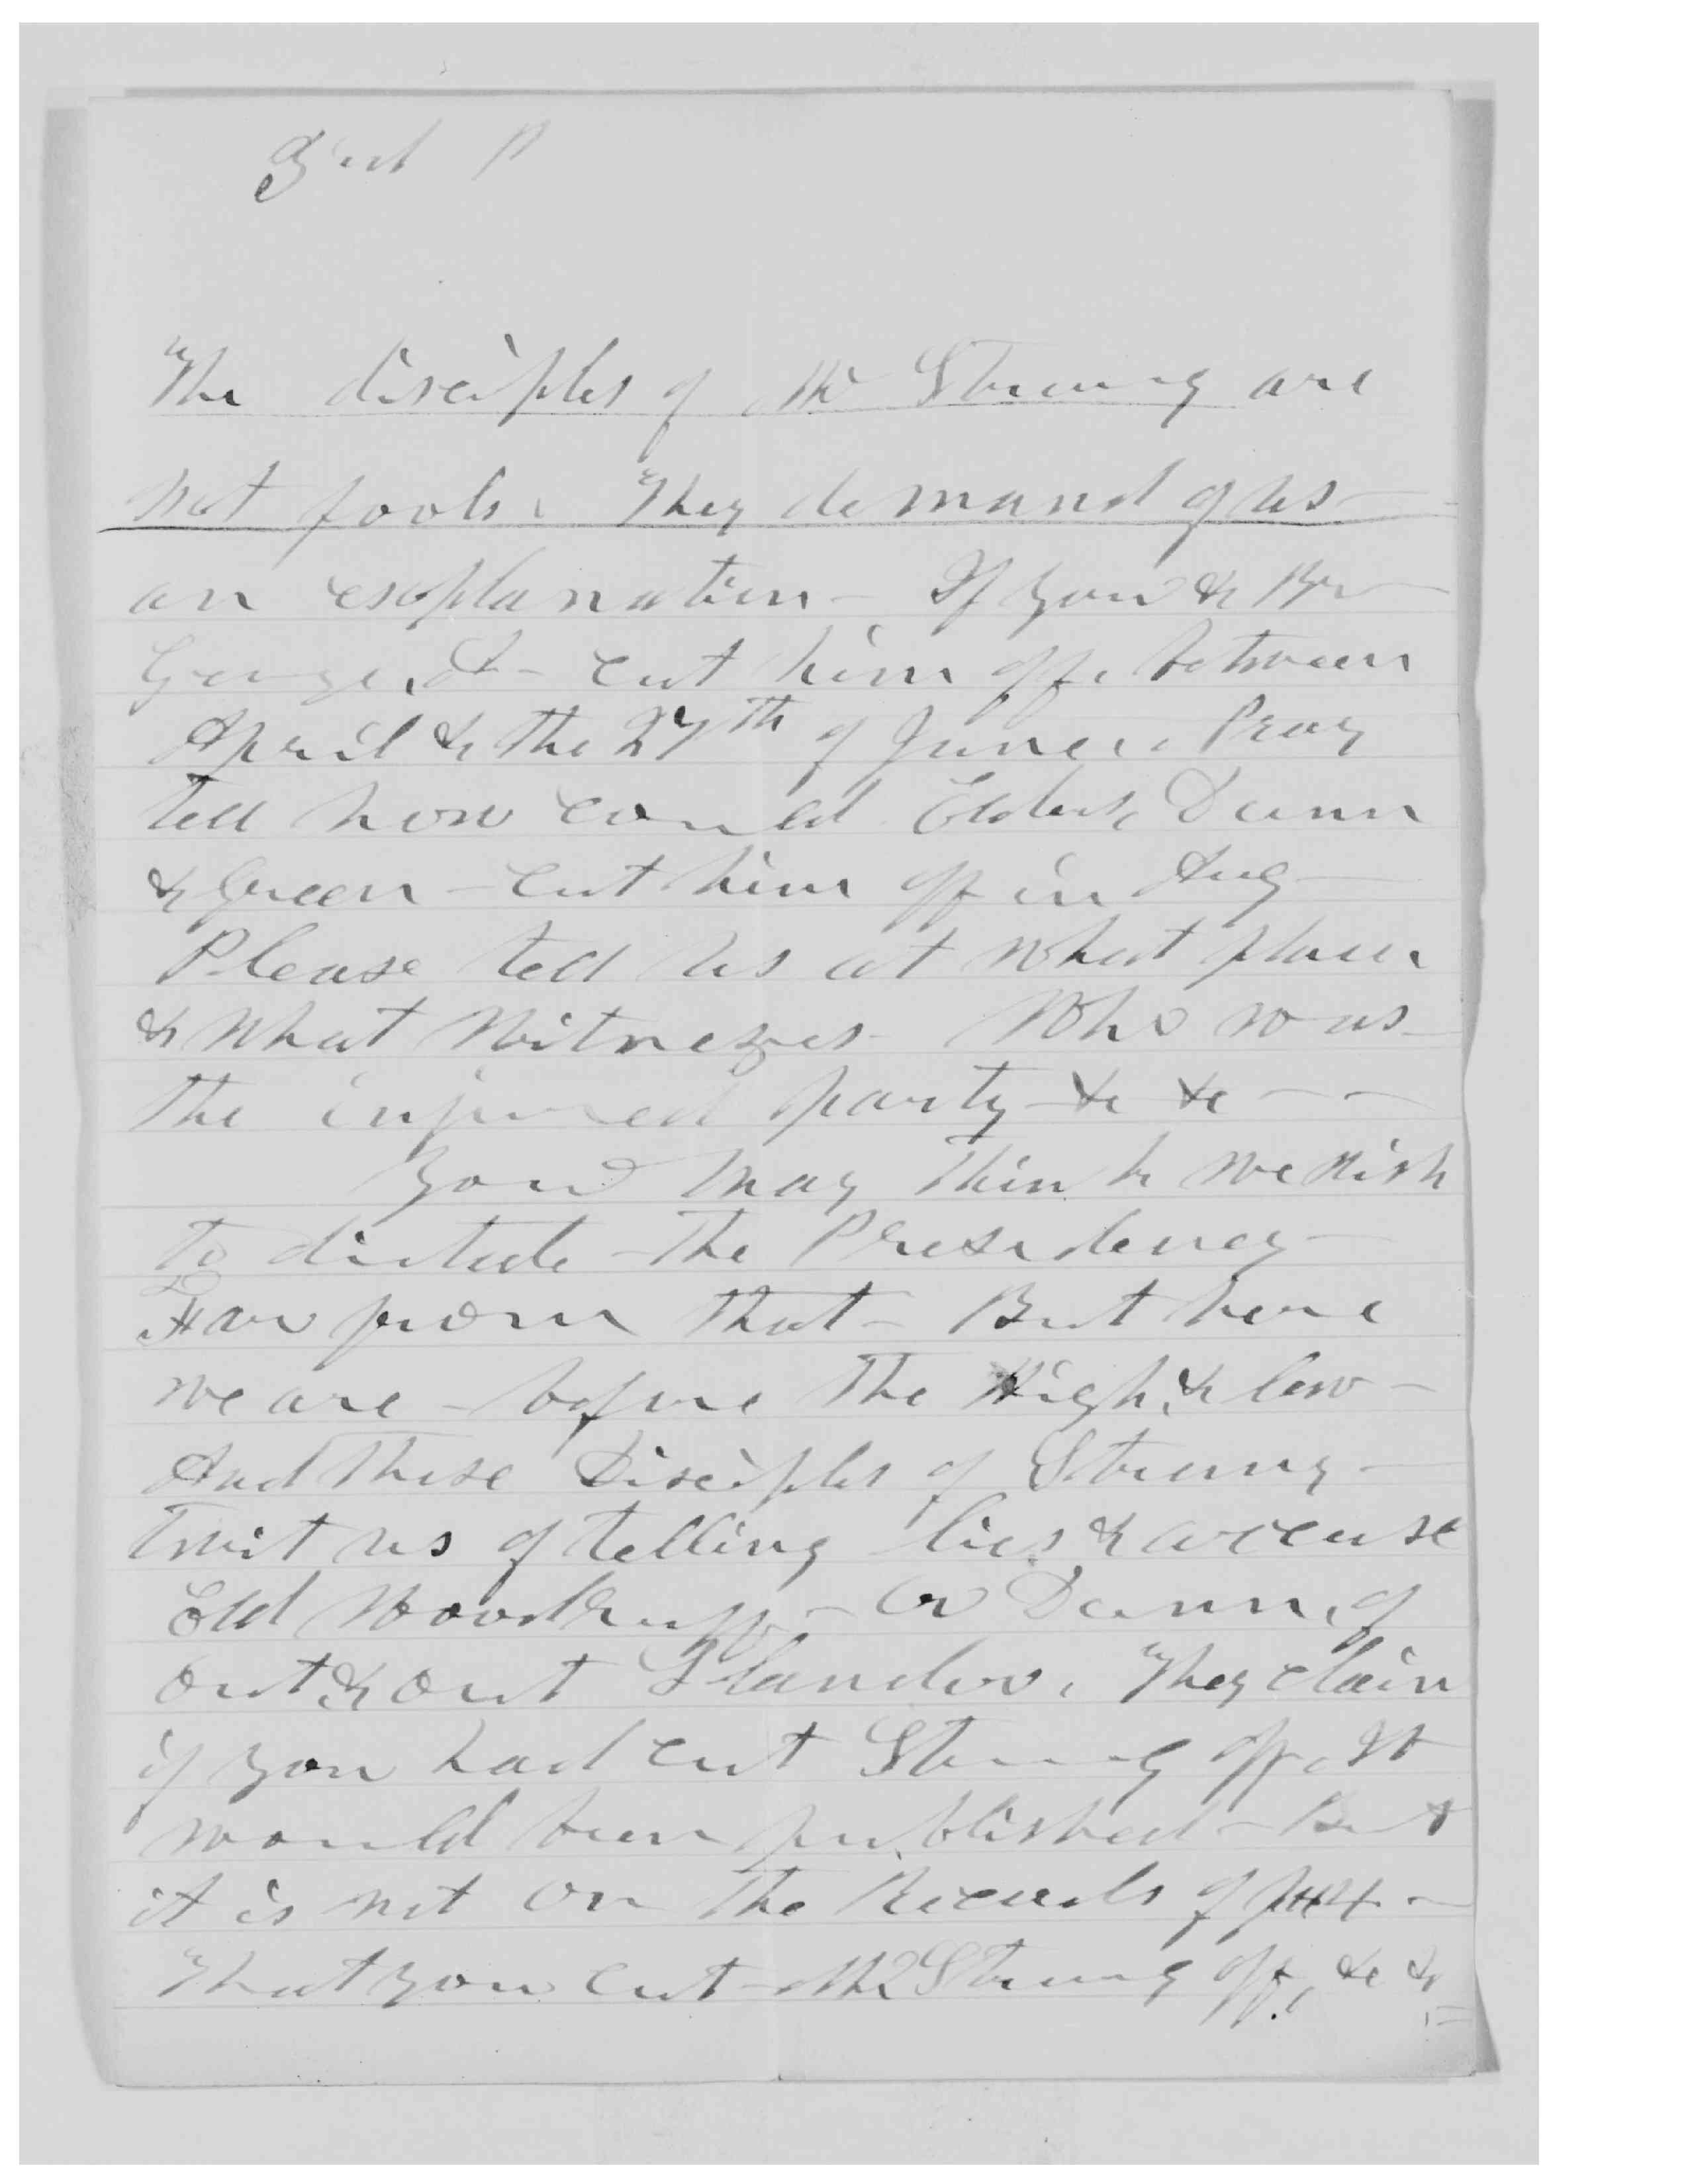 The disciples of Mr Strang are
not fools. They demand of us
an explanation - If you & Br
George, A - cut him off, between
April & the 27th of June, Pray
tell how could Elders, Dunn
& Green - cut him off in Aug
Please tell us at what place
& what Witnesses - Who was
the injured party &c &c - -
You may think we wish
to dictate - the Presidency -
Far from that - But here
we are - before the High, & low -
And these Disciples of Strang -
twit us of telling lies & accuse
Eld Woodruff - or Dunn, of
out & out Slander, They claim
if you had cut Strang off, It
would been published - But
it is not on the Records of
That you cut - Mr Strang off, &c &c